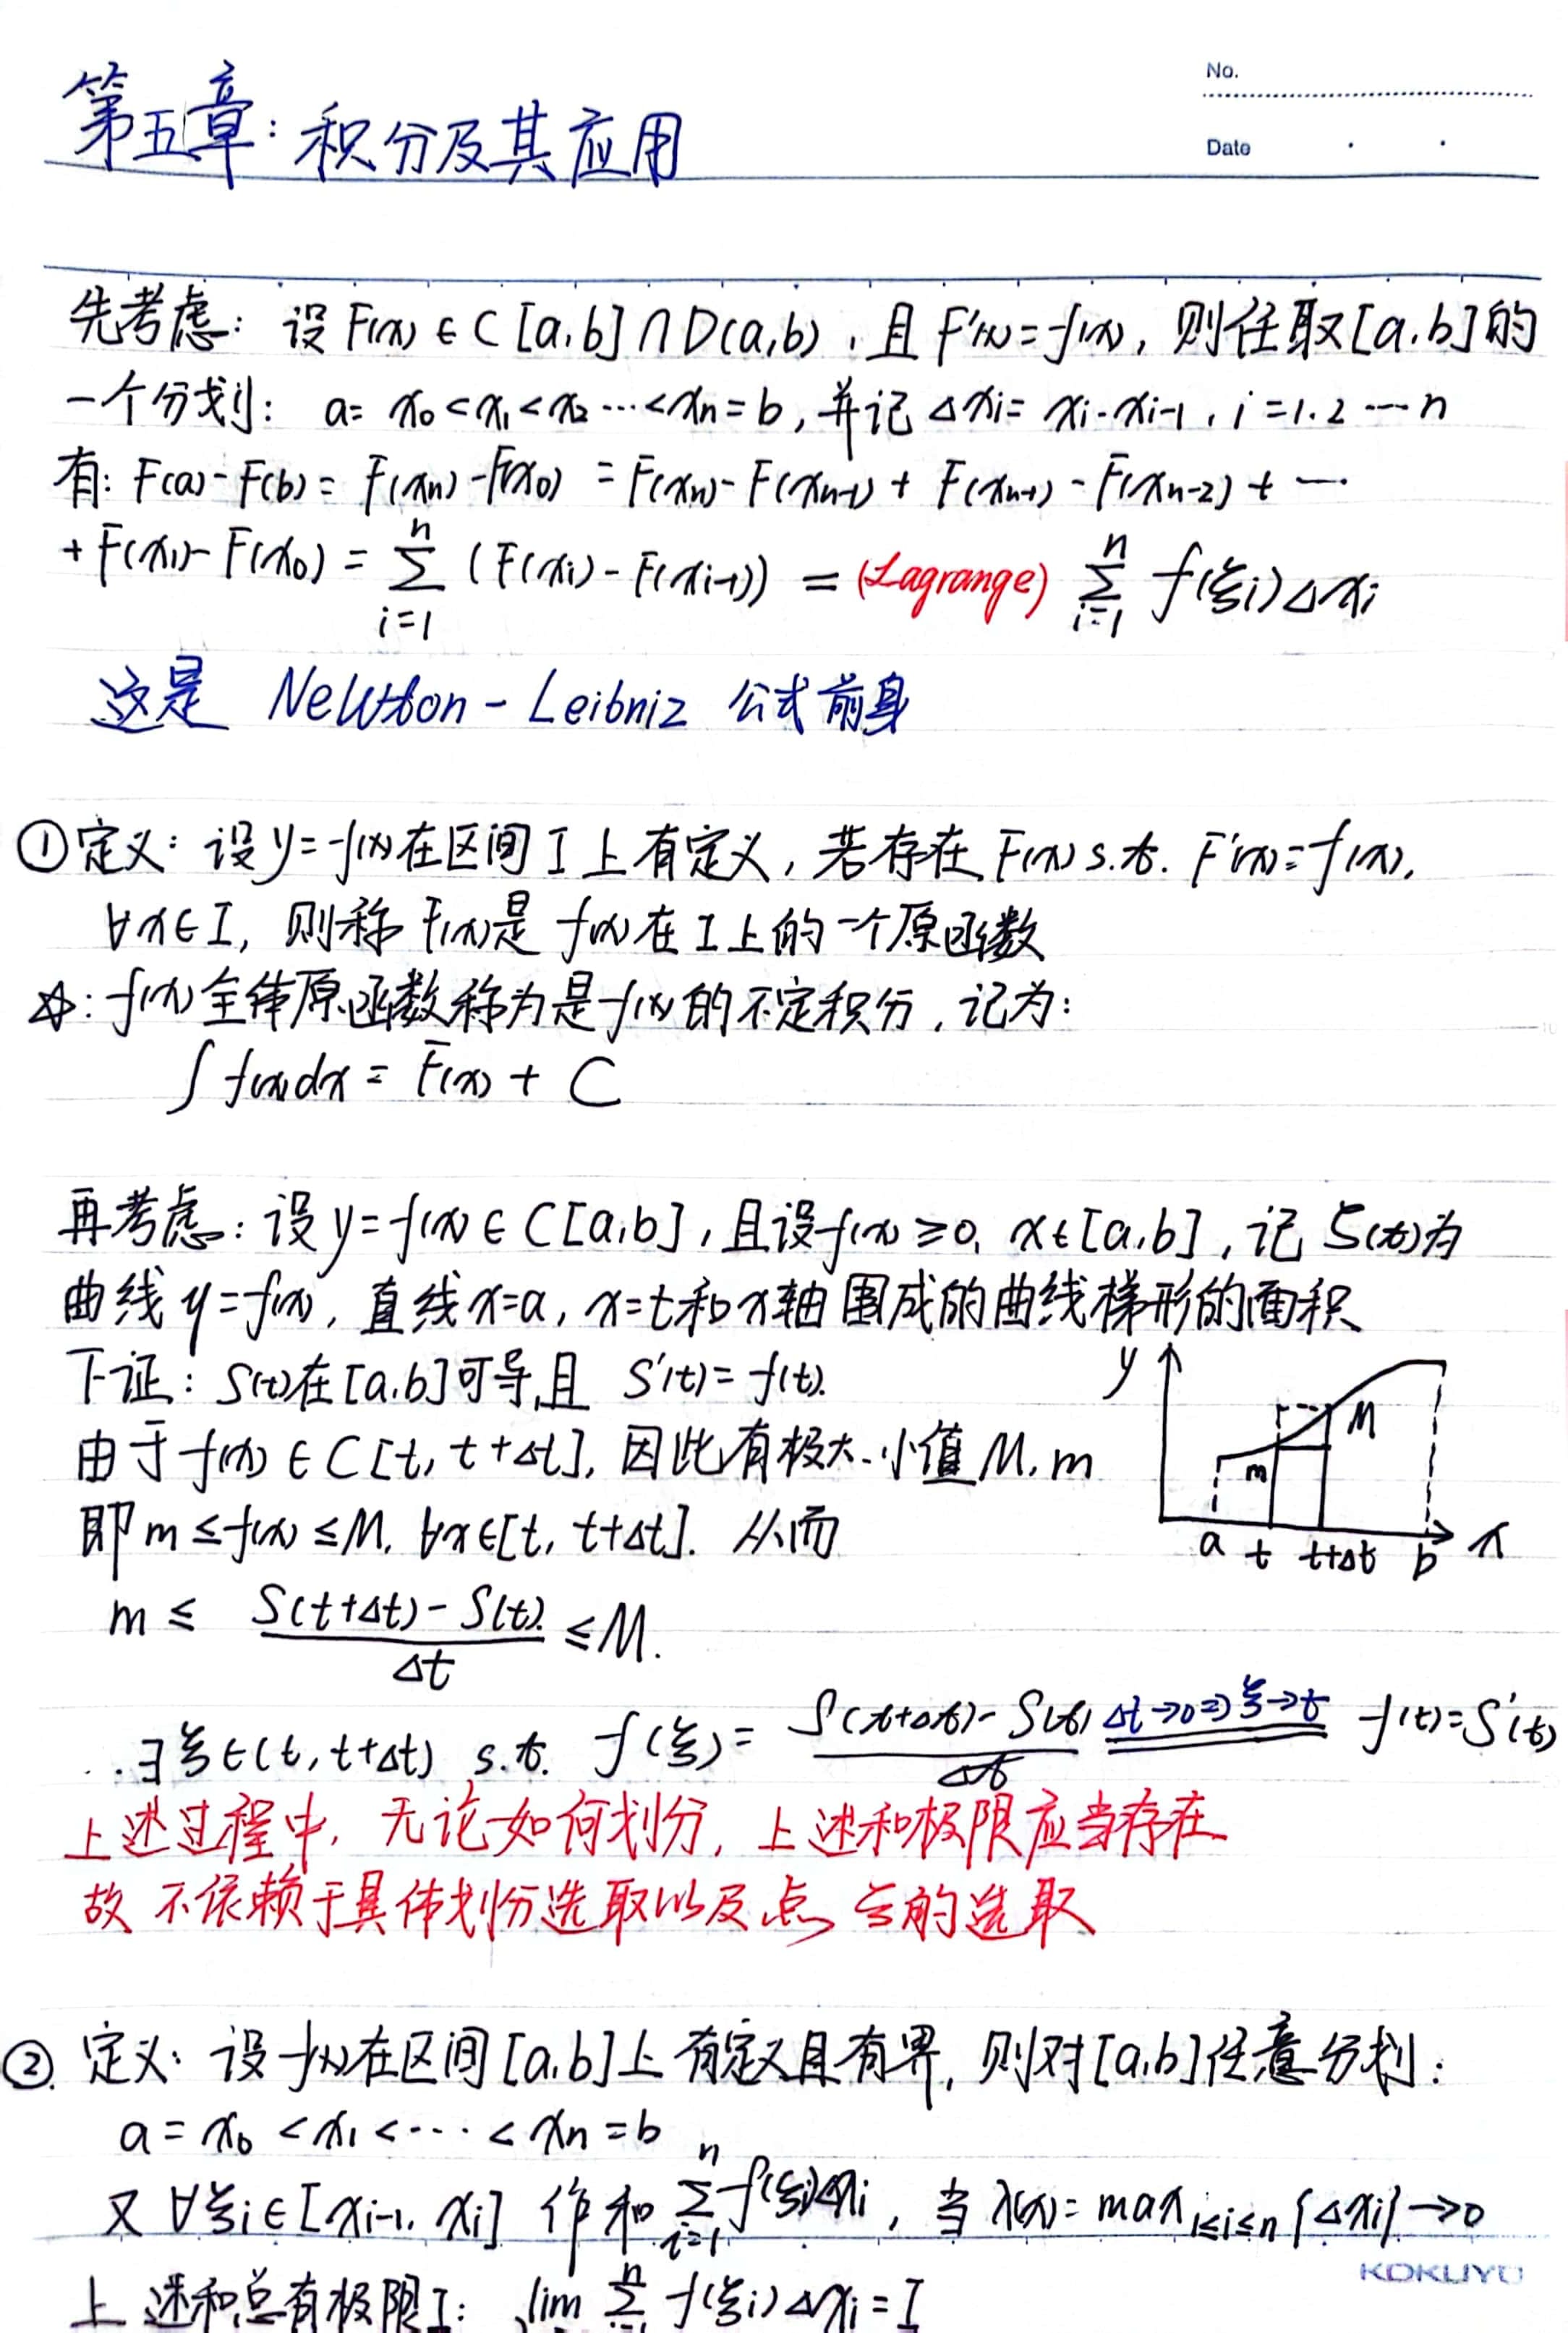 No.
Date
第五章：积分及其应用
先考虑：设F(x)∈C[a,b]∩D(a,b)，且F'(x)=f(x)，则任取[a,b]的
一个分划：a=x₀<x₁<x₂…<xₙ=b，并记Δxᵢ=xᵢ-xᵢ₋₁，i=1.2…n
有：F(a)-F(b)=F(xₙ)-F(x₀)=F(xₙ)-F(xₙ₋₁)+F(xₙ₋₁)-F(xₙ₋₂)+…
+F(x₁)-F(x₀)=∑ᵢ₌₁ⁿ(F(xᵢ)-F(xᵢ₋₁))=(Lagrange)∑ᵢ₌₁ⁿf(ξᵢ)Δxᵢ
这是 Newton-Leibniz 公式前身
①定义：设y=f(x)在区间I上有定义，若存在F(x) s.t. F'(x)=f(x),
∀x∈I，则称F(x)是f(x)在I上的一个原函数
☆：f(x)全体原函数称为是f(x)的不定积分，记为：
∫f(x)dx=F(x)+C
再考虑：设y=f(x)∈C[a,b]，且设f(x)≥0, x∈[a,b]，记S(t)为
曲线y=f(x)，直线x=a，x=t和x轴围成的曲线梯形的面积
下证：S(t)在[a,b]可导,且 S'(t)=f(t).
由于f(x)∈C[t,t+Δt]，因此有极大.小值M,m
即m≤f(x)≤M, ∀x∈[t,t+Δt]. 从而
y
M
m
a t t+Δt b x
m≤(S(t+Δt)-S(t))/Δt≤M.
∴∃ξ∈(t,t+Δt) s.t. f(ξ)=(S(t+Δt)-S(t))/Δt Δt→0⇒ξ→t f(t)=S'(t)
上述过程中，无论如何划分，上述和极限应当存在
故不依赖于具体划分选取以及点ξ的选取
②.定义：设f(x)在区间[a,b]上有定义且有界，则对[a,b]任意分划：
a=x₀<x₁<…<xₙ=b
又∀ξᵢ∈[xᵢ₋₁,xᵢ] 作和∑ᵢ₌₁ⁿf(ξᵢ)Δxᵢ，当λ(x)=max₁≤ᵢ≤ₙ{Δxᵢ}→0
上述和总有极限I：lim∑ᵢ₌₁ⁿf(ξᵢ)Δxᵢ=I
KOKUYO